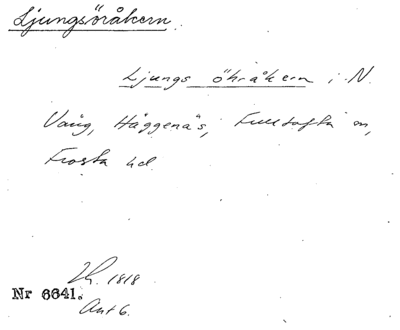 Ljungsöråkern.
Ljungs öhråkern i N.
Vång, Häggenäs, Fulltofta sn,
Frosta hd.
1818
Nr 6641.
Akt 6.